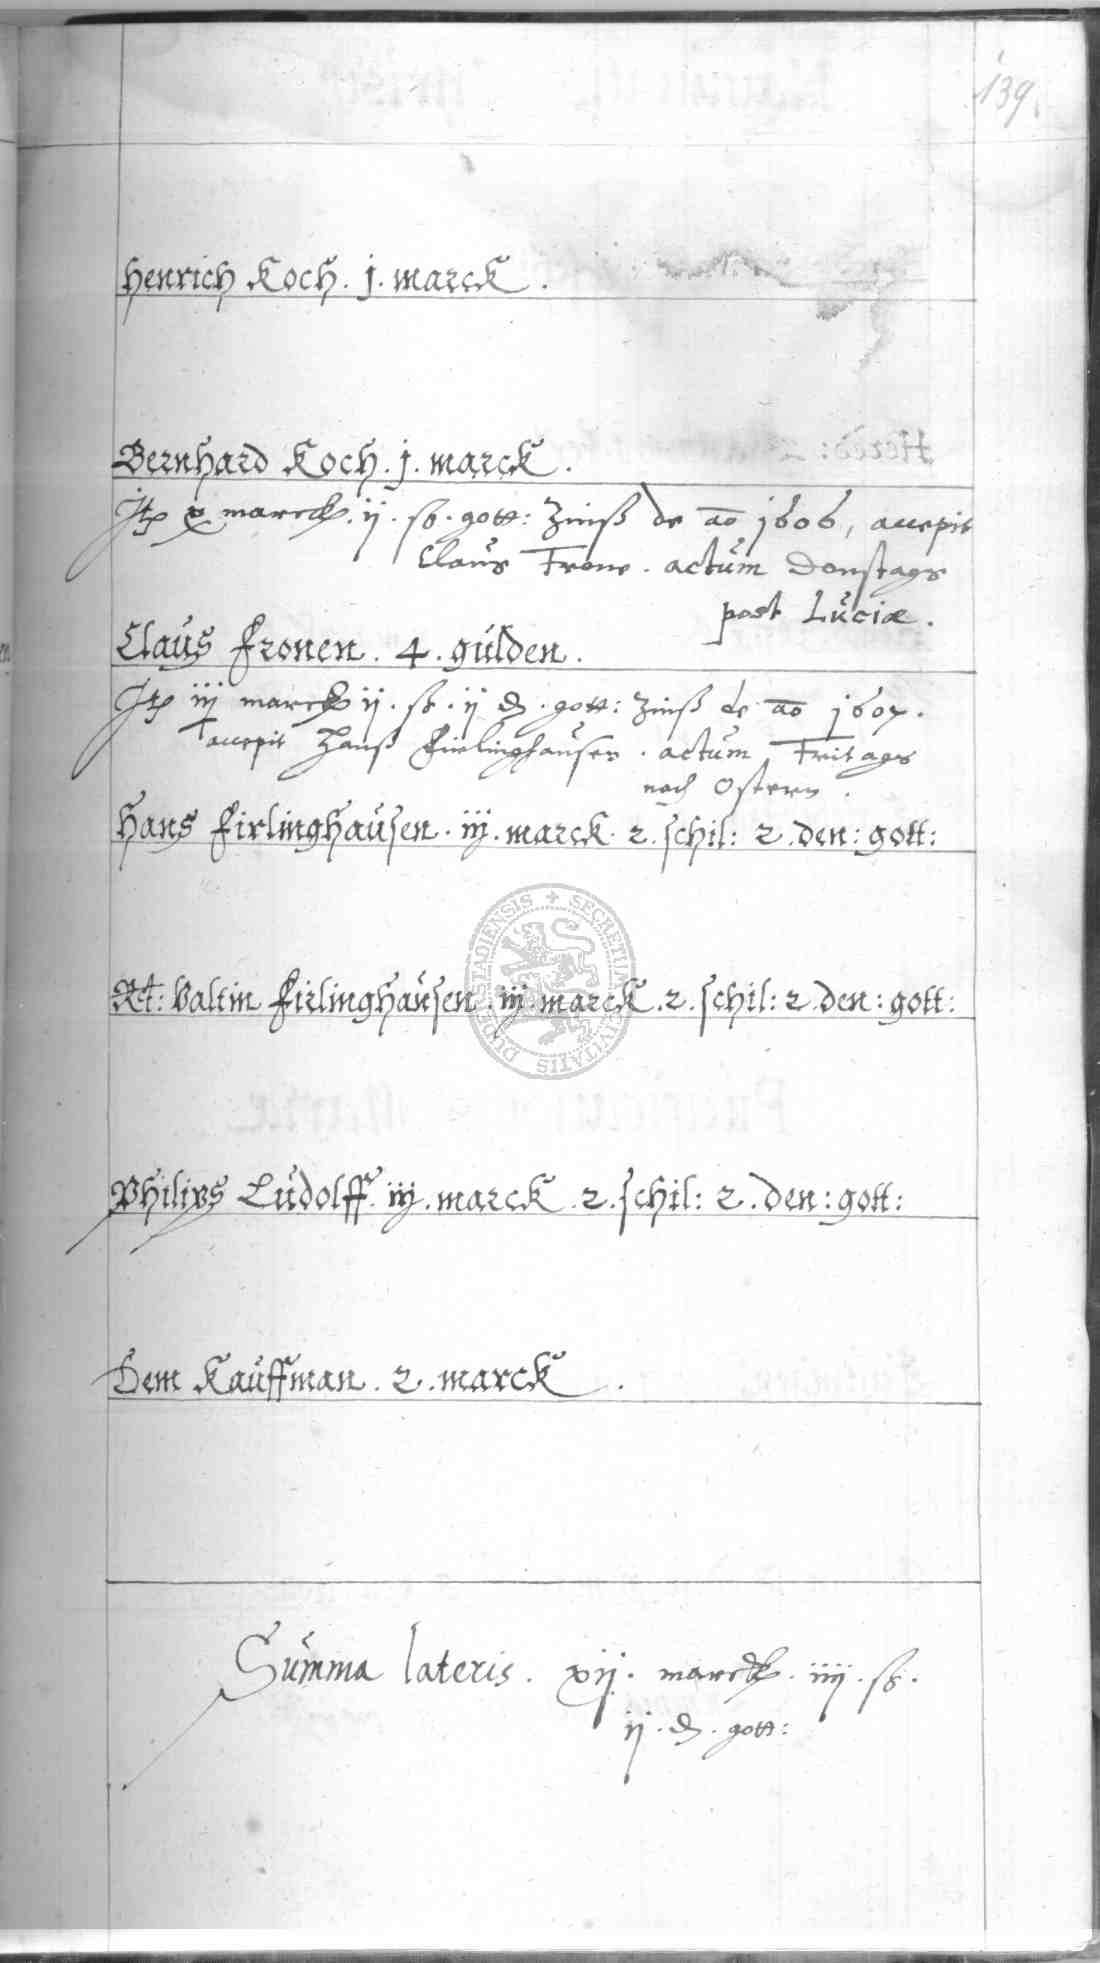 139.
Henrich Koch . j . marck .
Bernhard Koch . j . marck .
Jtȩ marck . ij . ß . gott: Zinß de ao 1606, accepit
Claus Frone . actum Donstags
post Luciæ .
Claus Fronen . 4 . gulden .
Jtȩ iij marck ij . ß . ij ₰ . gott: Zinß de ao 1607 .
accepit Hanß Firlinghausen . actum Fritags
nach Ostern .
Hans Firlinghausen . iij . marck . 2 . schil: 2 . den: gott:
Rt: Valtin Firlinghausen . iij . marck . 2 . schil: 2 . den: gott:
Philips Ludolff . iij . marck . 2 . schil: 2 . den: gott:
Dem Kauffman . 2 . marck .
Summa lateris . xij . marck . iiij . ß .
ij . ₰ . gott:
SECRETUM CIVITATIS DUDERSTADIENSIS